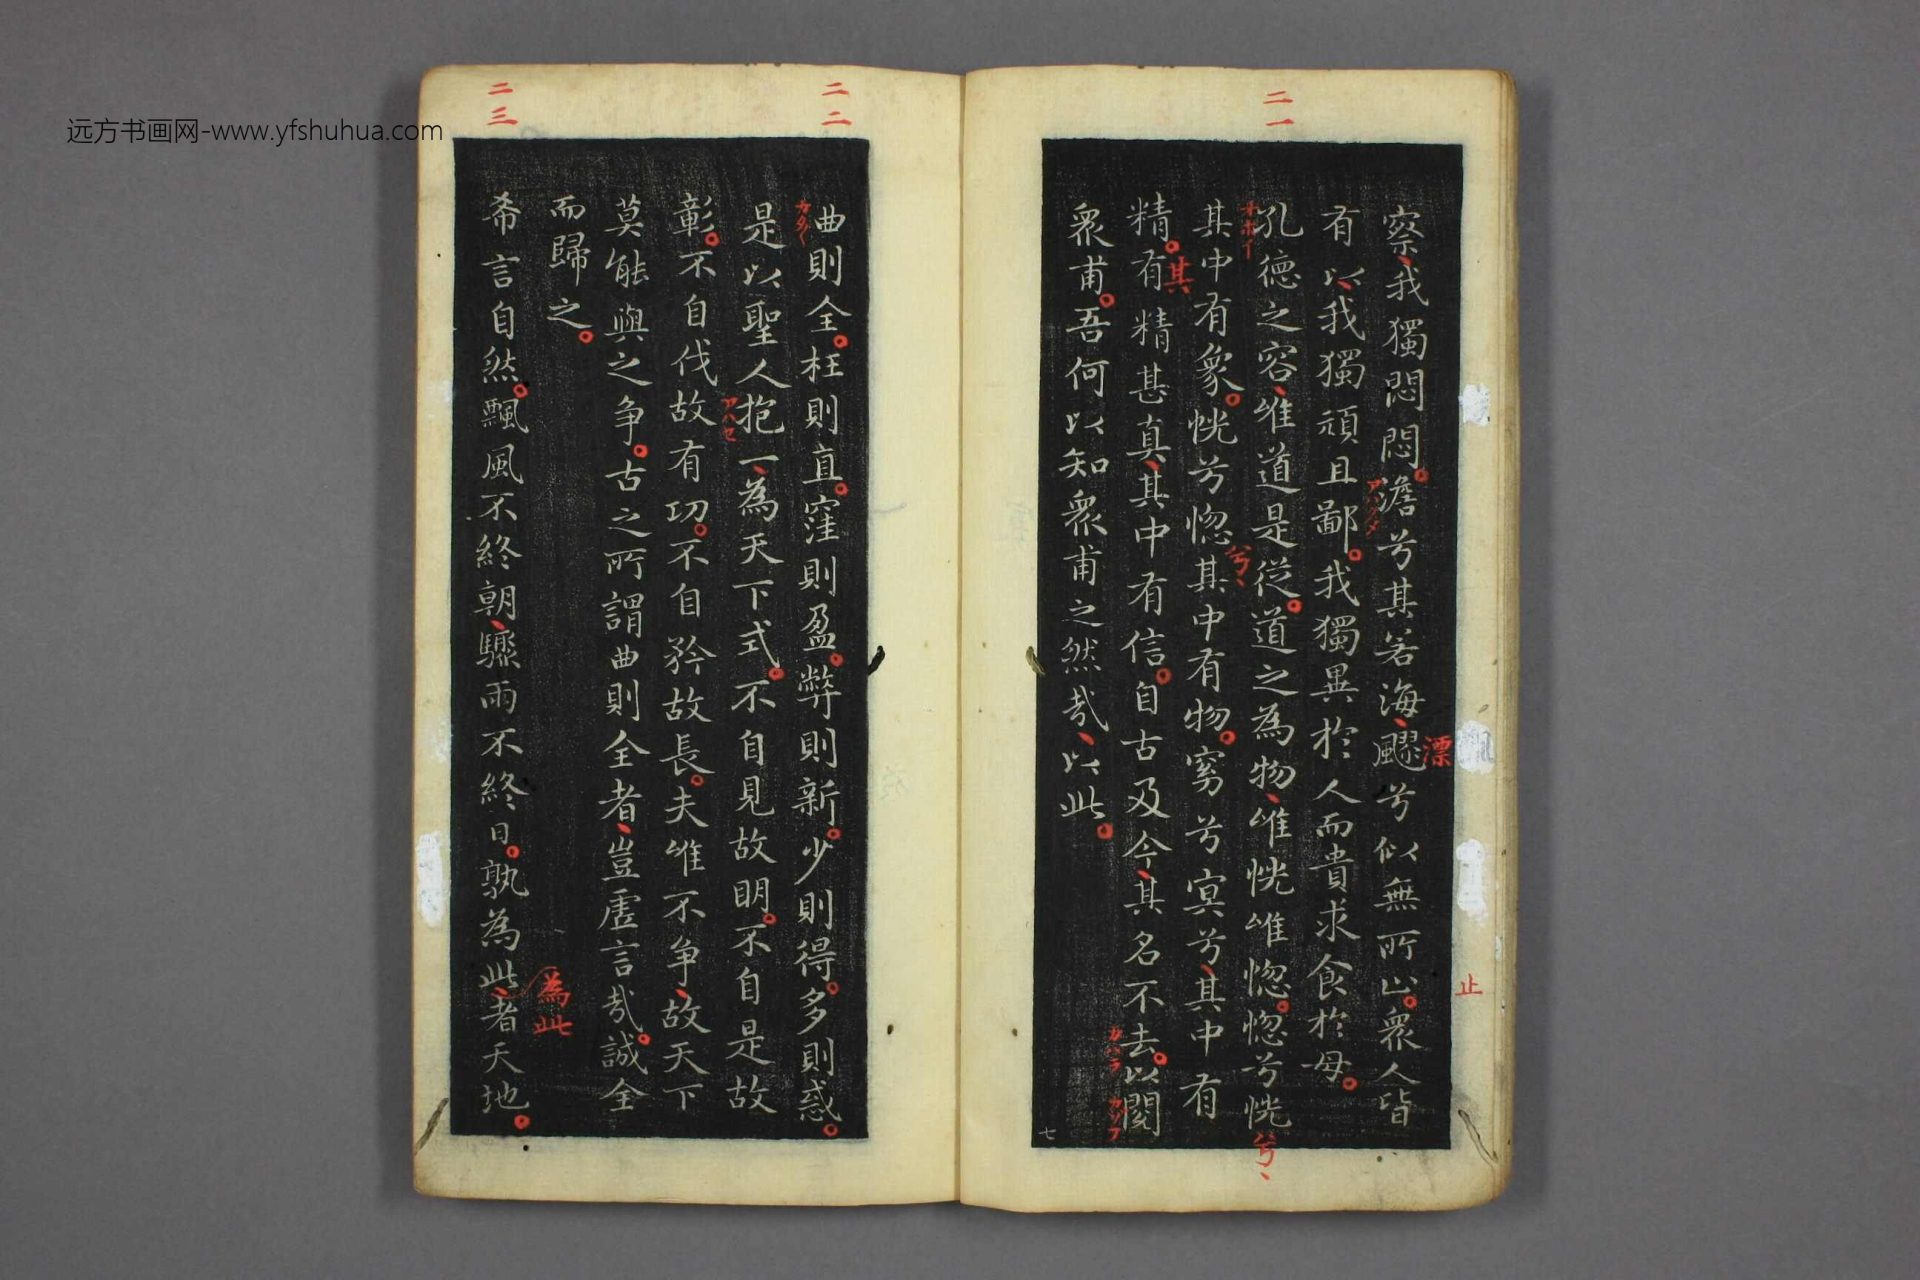 远方书画网-www.yfshuhua.com
二一
察、我獨悶悶。澹兮其若海、飂兮似無所止。衆人皆
アハタメ
漂
止
有以、我獨頑且鄙。我獨異於人而貴求食於母。
孔德之容、唯道是從。道之為物、唯恍唯惚。惚兮恍
兮、
其中有象。恍兮惚其中有物。窈兮冥兮、其中有
兮、
精。有精甚真、其中有信。自古及今、其名不去。以閱
其
衆甫。吾何以知衆甫之然哉、以此。
七
二二
曲則全。枉則直。窪則盈。弊則新。少則得。多則惑。
是以聖人抱一、為天下式。不自見故明。不自是故
彰。不自伐故有功。不自矜故長。夫唯不爭、故天下
莫能與之爭。古之所謂曲則全者、豈虛言哉。誠全
而歸之。
二三
希言自然。飄風不終朝、驟雨不終日。孰為此、者天地。
為此